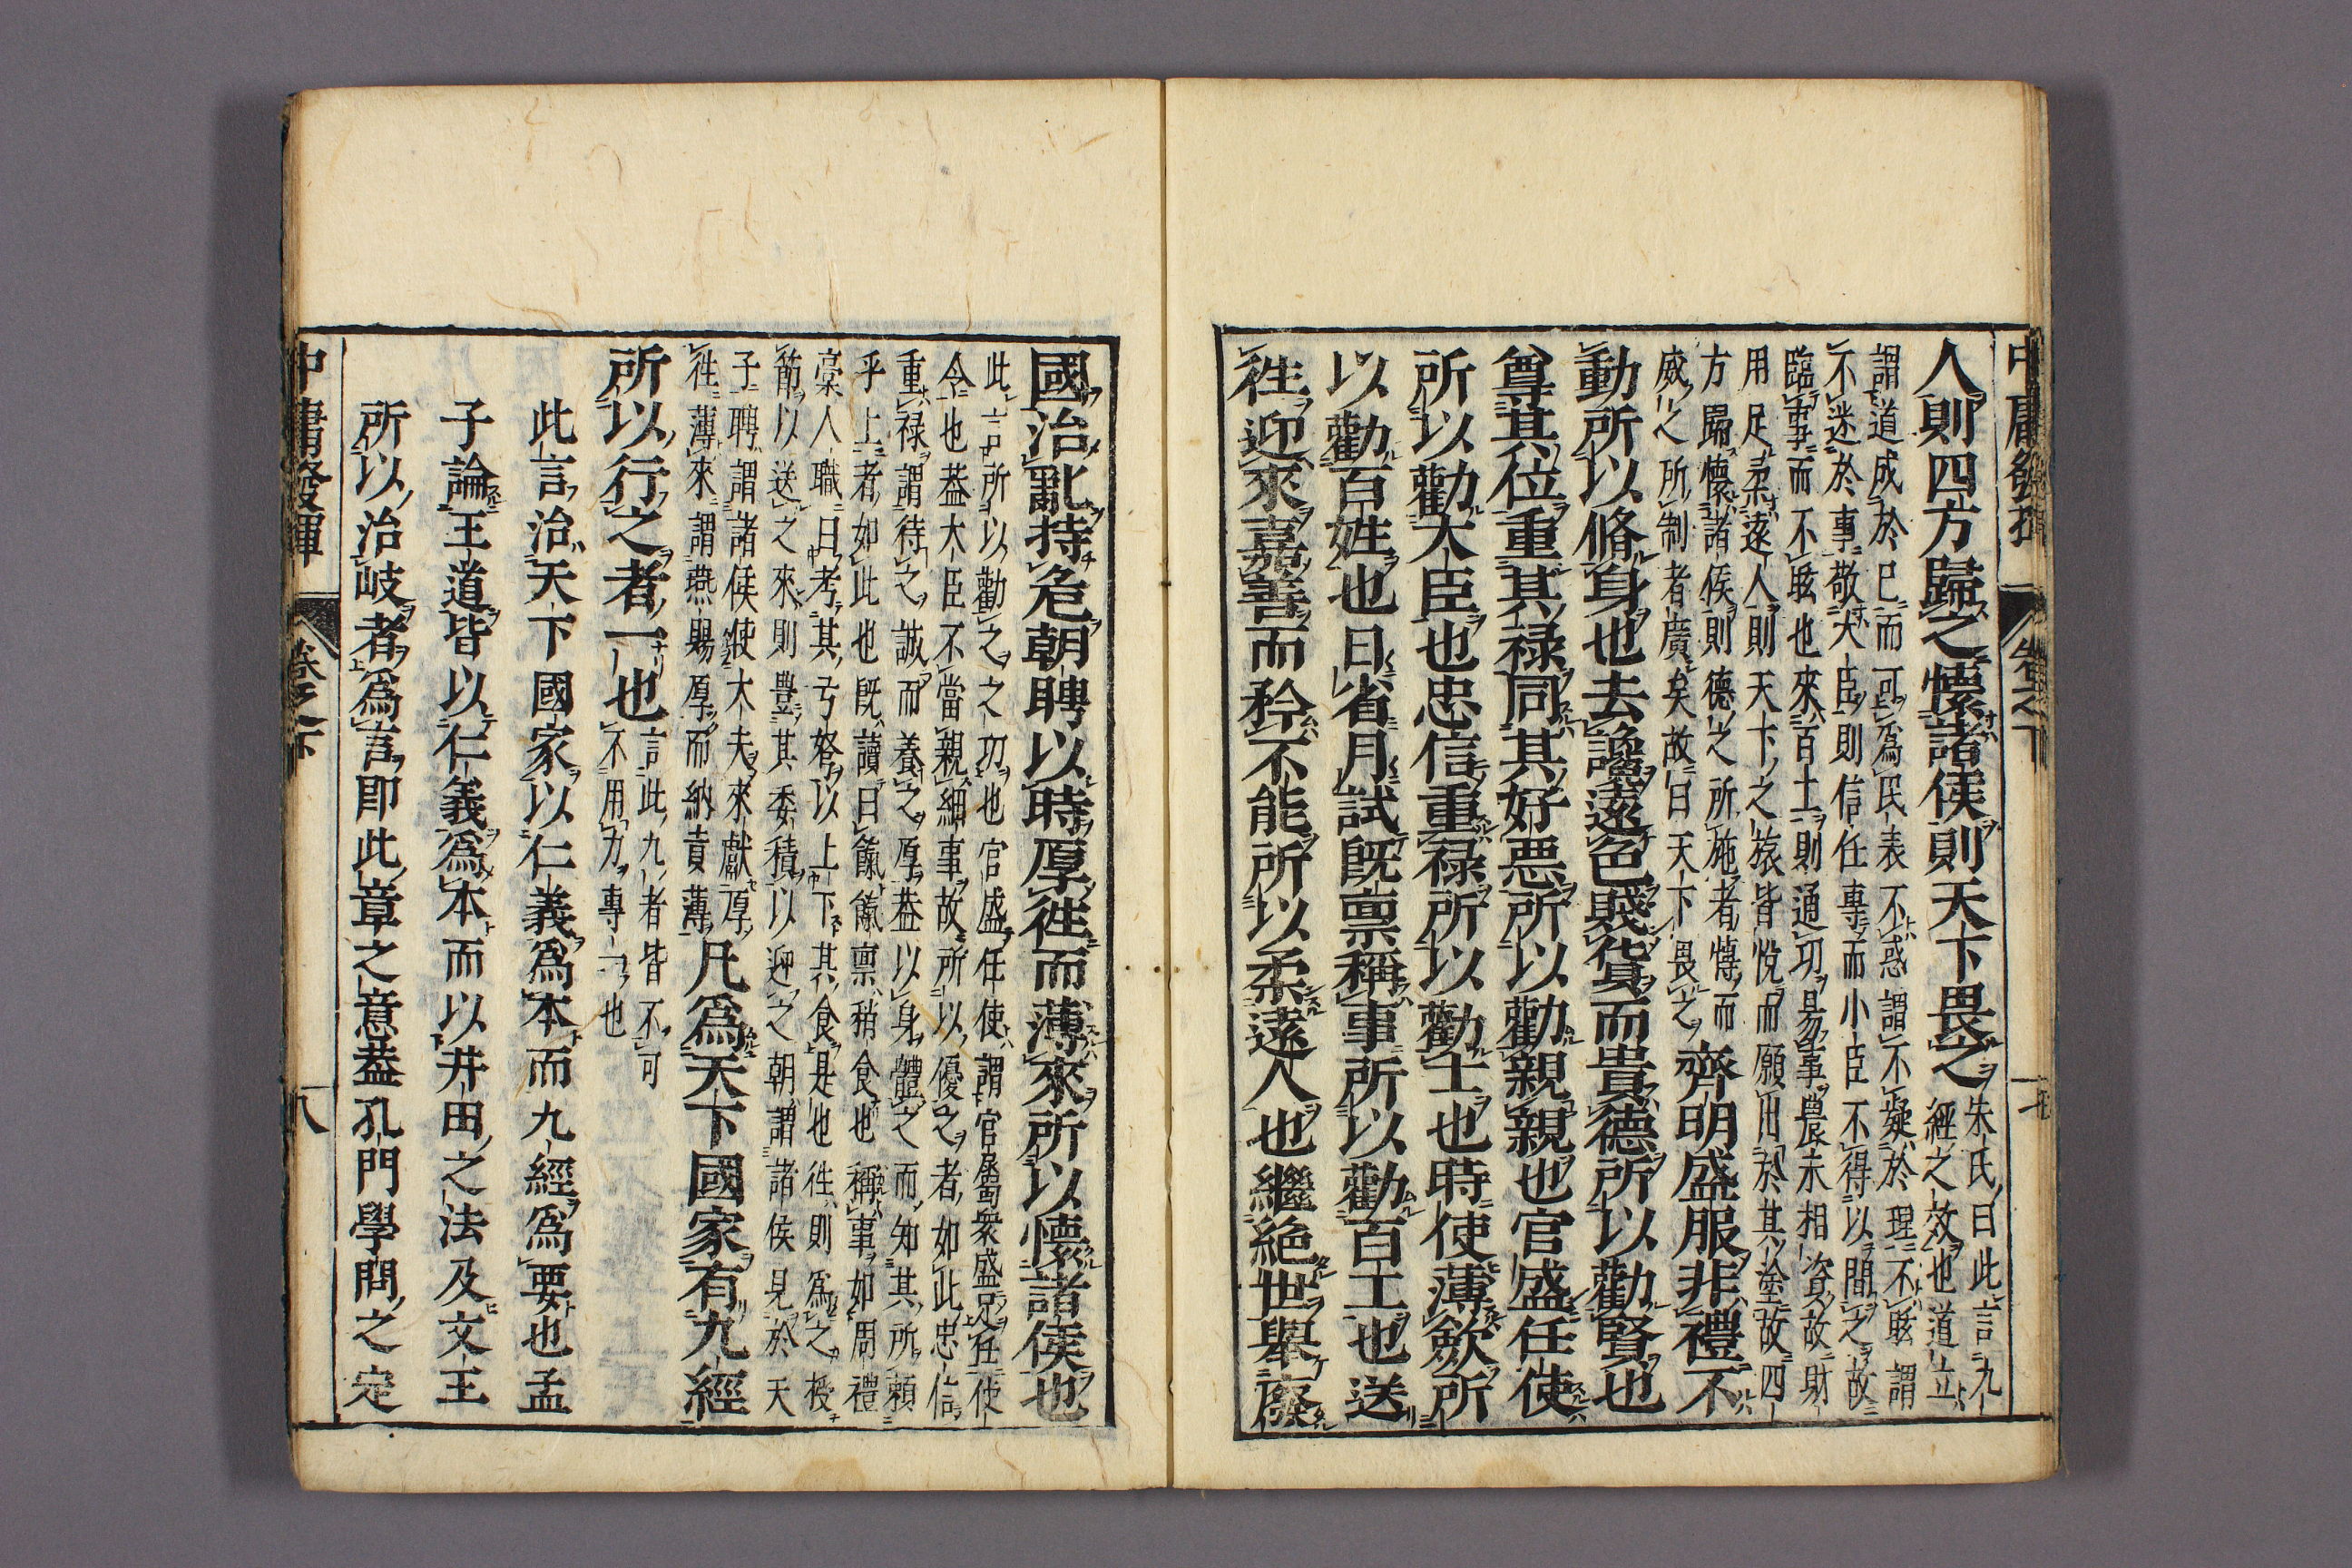 人則四方歸之懷諸侯則天下畏之
朱氏曰此言九
經之效也道立
謂道成於己而可爲民表不惑謂不疑於理不眩謂
不迷於事敬大臣則信任專而小臣不得以間之故
臨事而不眩也來百工則通功易事農末相資故財
用足柔遠人則天下之旅皆悅而願出於其塗故四
方歸懷諸侯則德之所施者博而
威之所制者廣矣故曰天下畏之
齊明盛服非禮不
動所以脩身也去讒遠色賤貨而貴德所以勸賢也
尊其位重其禄同其好惡所以勸親親也官盛任使
所以勸大臣也忠信重禄所以勸士也時使薄歛所
以勸百姓也日省月試旣禀稱事所以勸百工也送
徃迎來嘉善而矜不能所以柔遠人也繼絶世舉廢
國治亂持危朝聘以時厚徃而薄來所以懷諸侯也
此言所以勸之之功也官盛任使謂官屬衆盛足任使
令也葢大臣不當親細事故所以優之者如此忠信
重禄謂待之誠而養之厚葢以身體之而知其所賴
乎上者如此也旣讀曰餼餼禀稍食也稱事如周禮
槀人職曰考其弓弩以上下其食是也徃則爲之授
節以送之來則豊其委積以迎之朝謂諸侯見於天
子聘謂諸侯使大夫來獻厚
徃薄來謂燕賜厚而納貢薄
凡爲天下國家有九經
所以行之者一也
言此九者皆不可
不用力專一也
此言治天下國家以仁義爲本而九經爲要也孟
子論王道皆以仁義爲本而以井田之法及文王
所以治岐者爲言即此章之意葢孔門學問之定
中庸發揮
卷之下
八